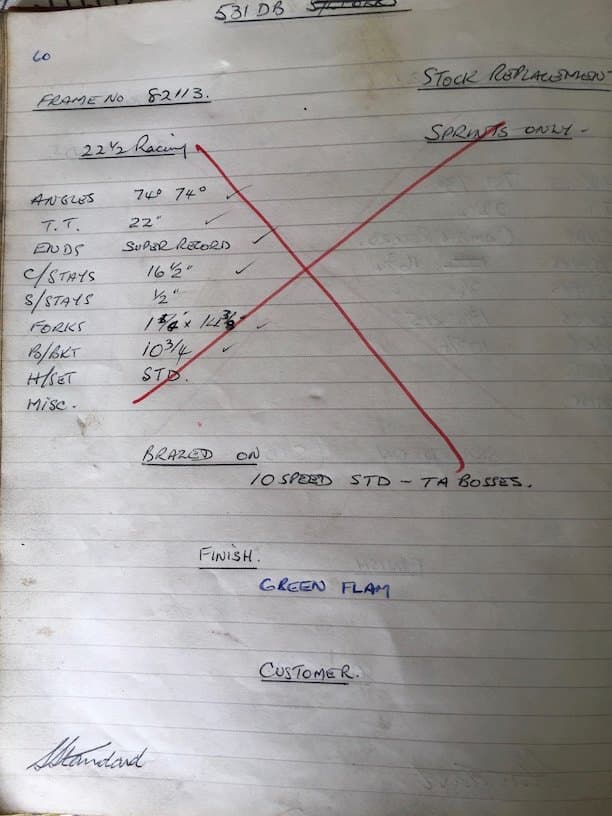 531 DB
60
STOCK REPLACEMENT
FRAME NO 82113.
SPRINTS ONLY -
22 1/2 Racing
ANGLES 74° 74° ✓
T.T. 22" ✓
ENDS SUPER RECORD ✓
C/STAYS 16 1/2" ✓
S/STAYS 1/2"
FORKS ✓
B/BKT 10 3/4 ✓
H/SET STD.
MISC.
BRAZED ON
10 SPEED STD - TA BOSSES.
FINISH.
GREEN FLAM
CUSTOMER.